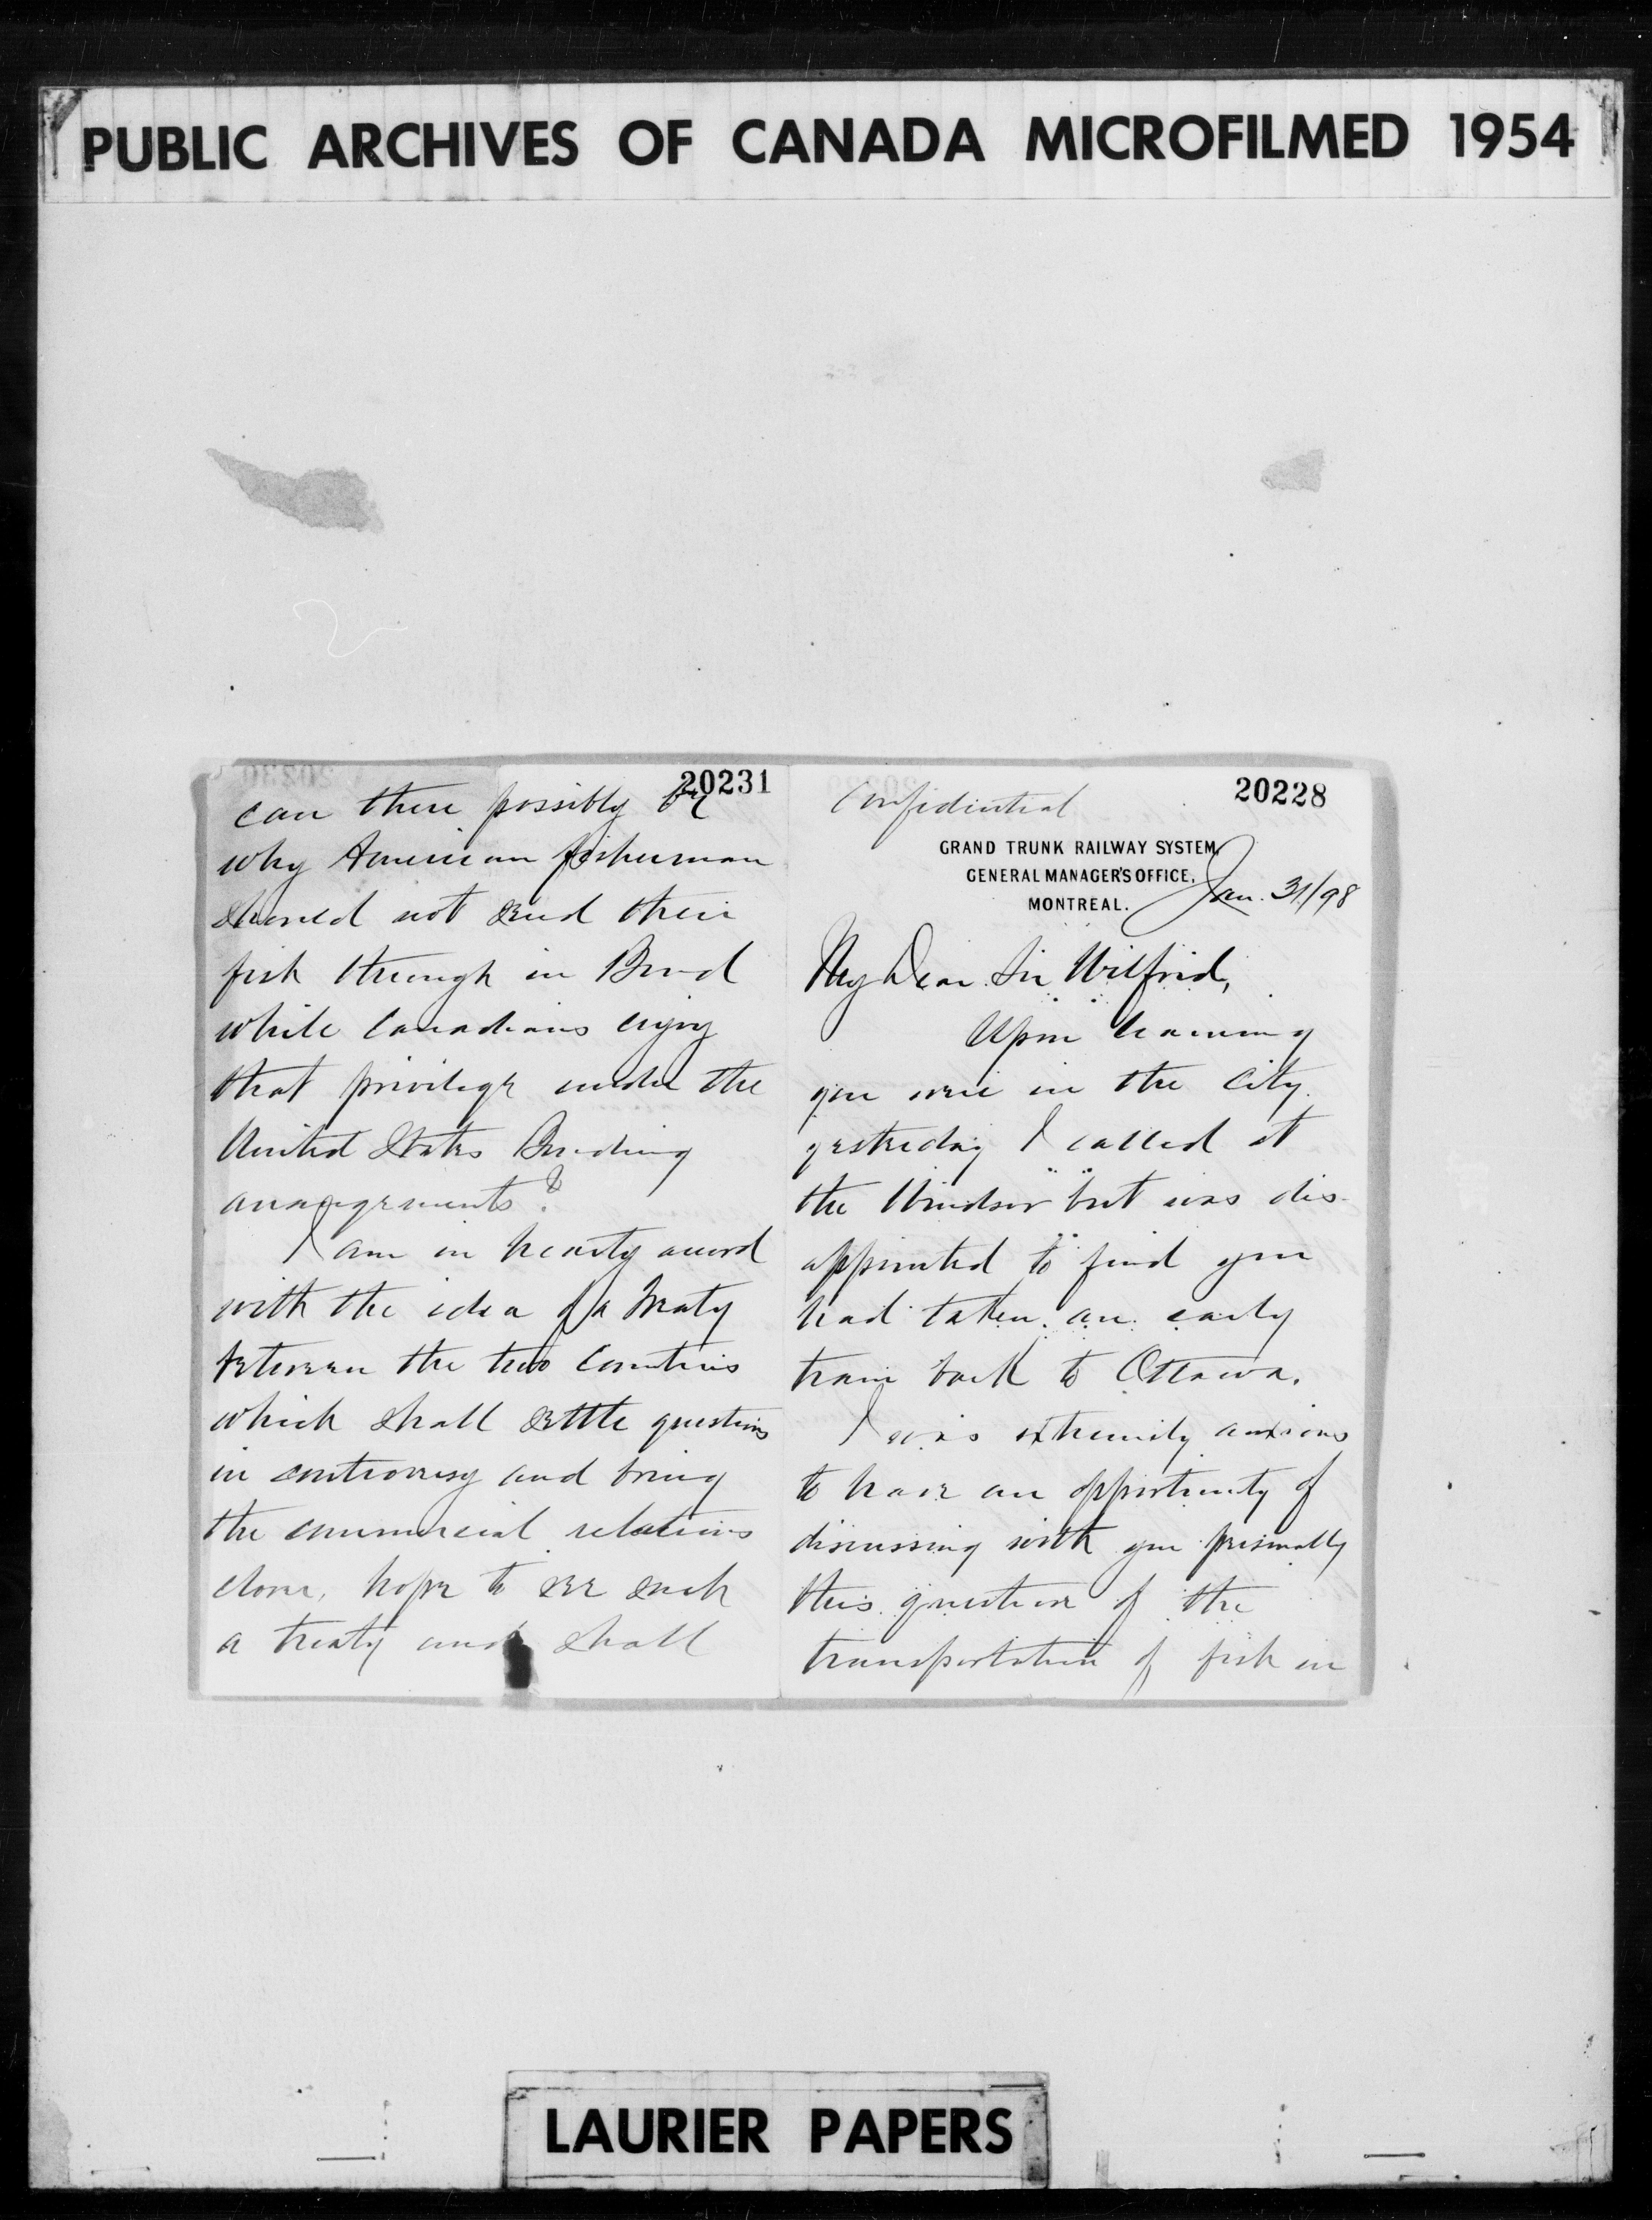 PUBLIC ARCHIVES OF CANADA MICROFILMED 1954
20231
can there possibly be
why American fisherman
should not send their
fish through in Bond
while Canadians enjoy
that privilege under the
United States Bonding
arrangements?
I am in hearty accord
with the idea of a Treaty
between the two Countries
which shall settle questions
in controversy and bring
the commercial relations
closer, hope to see such
a treaty and shall
20228
Confidential
GRAND TRUNK RAILWAY SYSTEM,
GENERAL MANAGER'S OFFICE,
MONTREAL. Jan. 31/98
My Dear Sir Wilfrid,
Upon learning
you were in the City
yesterday I called at
the "Windsor" but was dis-
appointed to find you
had taken an early
train back to Ottawa.
I was extremely anxious
to have an opportunity of
discussing with you personally
this question of the
transportation of fish in
LAURIER PAPERS